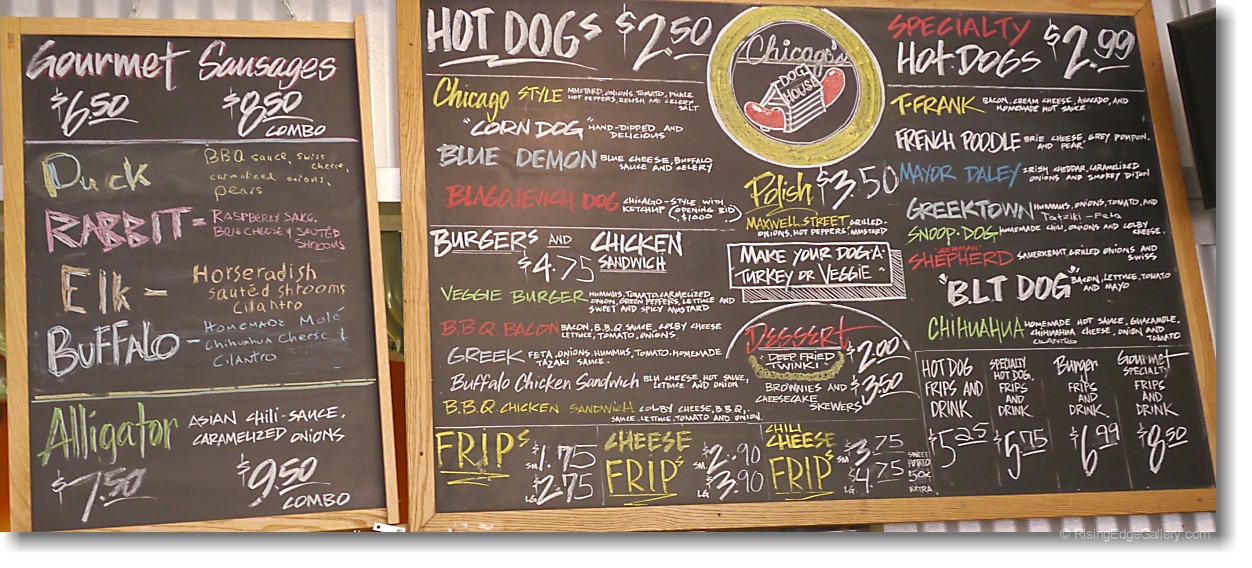 Gourmet Sausages
$6.50 $8.50
COMBO
Duck
BBQ sauce, swiss
cheese,
carmalized onions,
pears
RABBIT =
RASPBERRY SAUCE,
BRIE CHEESE & SAUTED
SHROOMS
Elk -
Horseradish
sauted shrooms
Cilantro
BUFFALO -
HOMEMADE MOLÉ
Chihuahua Cheese &
CILANTRO
Alligator
ASIAN CHILI-SAUCE,
CARAMELIZED ONIONS
$7.50 $9.50
COMBO
HOT DOGS $2.50
Chicago STYLE
MUSTARD, ONIONS, TOMATO, PICKLE
HOT PEPPERS, RELISH AND CELERY
SALT
"CORN DOG"
HAND-DIPPED AND
DELICIOUS
BLUE DEMON
BLUE CHEESE, BUFFALO
SAUCE AND CELERY
BLAGOJEVICH DOG
CHICAGO-STYLE WITH
KETCHUP (OPENING BID
$1000)
Chicago's
DOG
HOUSE
Polish $3.50
MAXWELL STREET GRILLED
ONIONS, HOT PEPPERS, MUSTARD
MAKE YOUR DOG A
TURKEY OR VEGGIE
BURGERS AND CHICKEN
SANDWICH
$4.75
VEGGIE BURGER
HUMMUS, TOMATO, CARMELIZED
ONION, GREEN PEPPERS, LETTUCE AND
SWEET AND SPICY MUSTARD
B.B.Q. BACON
BACON, B.B.Q. SAUCE, COLBY CHEESE
LETTUCE, TOMATO, ONIONS.
GREEK
FETA, ONIONS, HUMMUS, TOMATO, HOMEMADE
TAZAKI SAUCE
Buffalo Chicken Sandwich
BLU CHEESE, HOT SAUCE,
LETTUCE AND ONION
B.B.Q. CHICKEN SANDWICH
COLBY CHEESE, B.B.Q.,
SAUCE, LETTUCE, TOMATO AND ONION.
DESSERT
DEEP FRIED
TWINKI
$2.00
BROWNIES AND
CHEESECAKE
SKEWERS
$3.50
FRIPS
SM $1.75
LG $2.75
CHEESE
FRIPS
SM $2.90
LG $3.90
CHILI
CHEESE
FRIPS
SM $3.75
LG $4.75
SWEET
POTATO
50¢
EXTRA
SPECIALTY
HOT DOGS $2.99
T-FRANK
BACON, CREAM CHEESE, AVOCADO, AND
HOMEMADE HOT SAUCE
FRENCH POODLE
BRIE CHEESE, GREY POUPON,
AND PEAR
MAYOR DALEY
IRISH CHEDDAR, CARAMELIZED
ONIONS AND SMOKEY DIJON
GREEKTOWN
HUMMUS, ONIONS, TOMATO, AND
Tatziki - Feta
SNOOP-DOG
HOMEMADE CHILI, ONIONS AND COLBY
CHEESE.
"GERMAN"
SHEPHERD
SAUERKRAUT, GRILLED ONIONS AND
SWISS
"B.L.T DOG"
BACON, LETTUCE, TOMATO
AND MAYO
CHIHUAHUA
HOMEMADE HOT SAUCE, GUACAMOLE,
CHIHUAHUA CHEESE, ONION AND
CILANTRO TOMATO
HOT DOG
FRIPS AND
DRINK
$5.25
SPECIALTY
HOT DOG,
FRIPS
AND
DRINK.
$5.75
Burger
FRIPS
AND
DRINK.
$6.99
Gourmet
SPECIALTY
FRIPS
AND
DRINK
$8.50
© RisingEdgeGallery.com